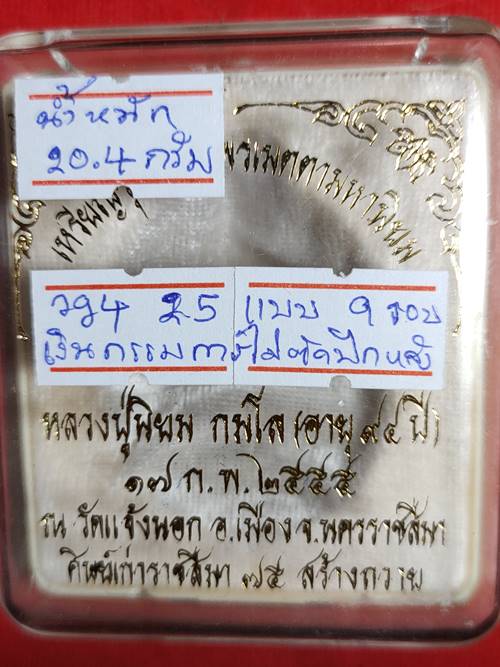 น้ำหนัก
20.4 กรัม
พรเมตตามหานิยม
25 แบบ 9 รอบ
เงินกรรมการไม่ตัดปีกหลัง
หลวงปู่นิยม กมโล (อายุ ๙๔ ปี)
๑๗ ก.พ. ๒๕๕๕
ณ วัดแจ้งนอก อ.เมือง จ.นครราชสีมา
ศิษย์เก่าราชสีมา ๗๕ สร้างถวาย